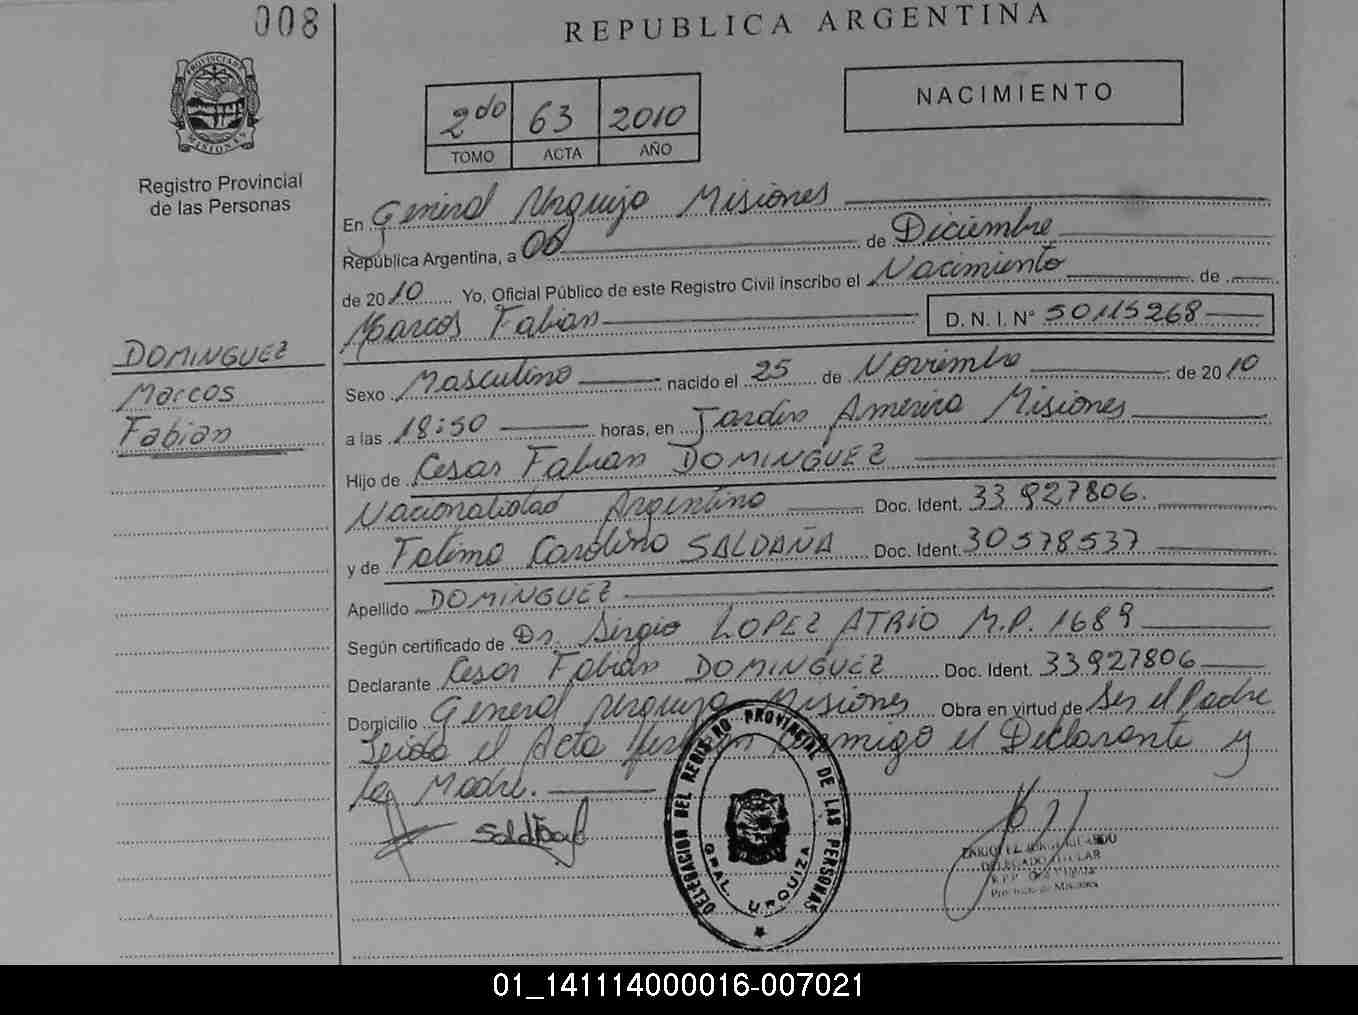 008
REPUBLICA ARGENTINA
PROVINCIA DE
MISIONES
Registro Provincial
de las Personas
2do 63 2010
TOMO ACTA AÑO
NACIMIENTO
En General Urquiza Misiones
República Argentina, a 06 de Diciembre
de 2010 Yo, Oficial Público de este Registro Civil inscribo el Nacimiento de
Marcos Fabian D. N. I. Nº 50115268
DOMINGUEZ
Marcos
Fabian
Sexo Masculino nacido el 25 de Noviembre de 2010
a las 18:50 horas, en Jardin America Misiones
Hijo de Cesar Fabian DOMINGUEZ
Nacionalidad Argentino Doc. Ident. 33927806.
y de Fatima Carolina SALDAÑA Doc. Ident. 30578537
Apellido DOMINGUEZ
Según certificado de Dr. Sergio LOPEZ ATRIO M.P. 1689
Declarante Cesar Fabian DOMINGUEZ Doc. Ident. 33927806
Domicilio General Urquiza Misiones Obra en virtud de Ser el Padre
Leida el Acta conmigo el Declarante y
la Madre.
DELEGACION DEL REGISTRO PROVINCIAL DE LAS PERSONAS
GRAL. URQUIZA
DELEGADO TITULAR
Provincia de Misiones
01_141114000016-007021